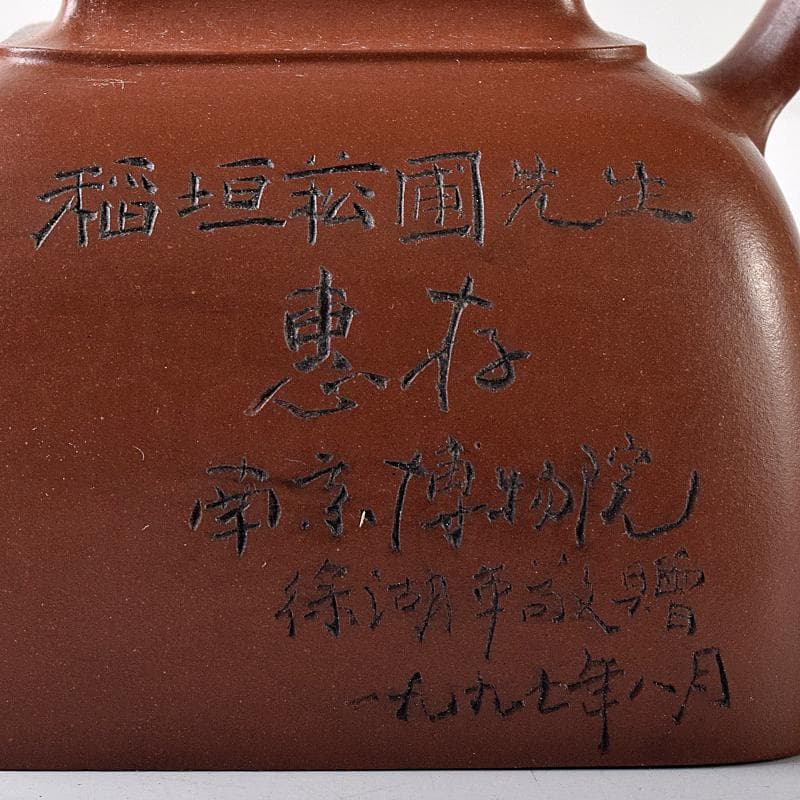 稲垣菘圃先生
惠存
南京博物院
徐湖平敬赠
一九九七年八月